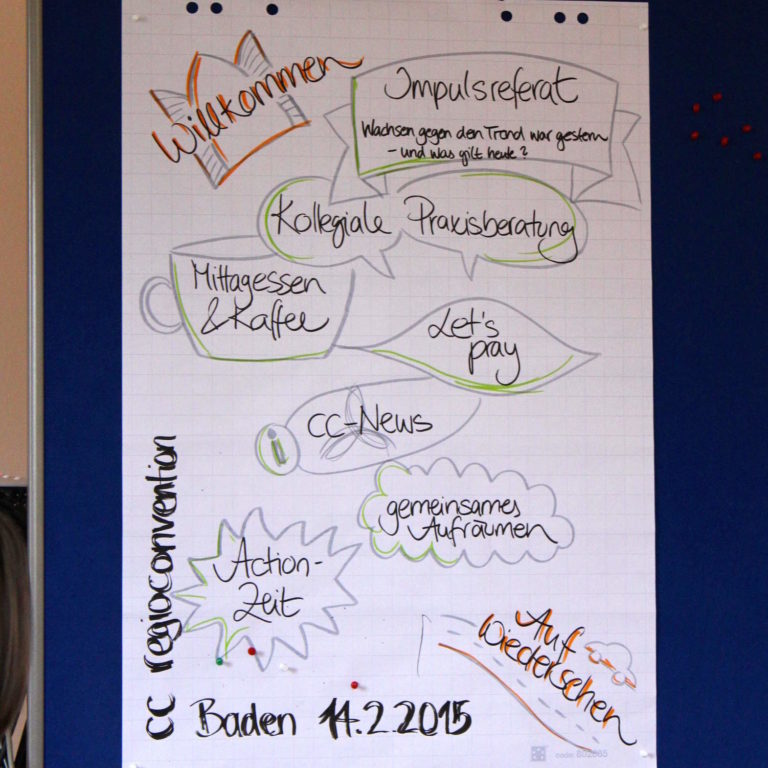 Willkommen
Impulsreferat
Wachsen gegen den Trend war gestern
– und was gilt heute?
Kollegiale Praxisberatung
Mittagessen
& Kaffee
Let's
pray
i
CC-News
gemeinsames
Aufräumen
Action-
Zeit
Auf
Wiedersehen
CC regioconvention
Baden 14.2.2015
code: 602665